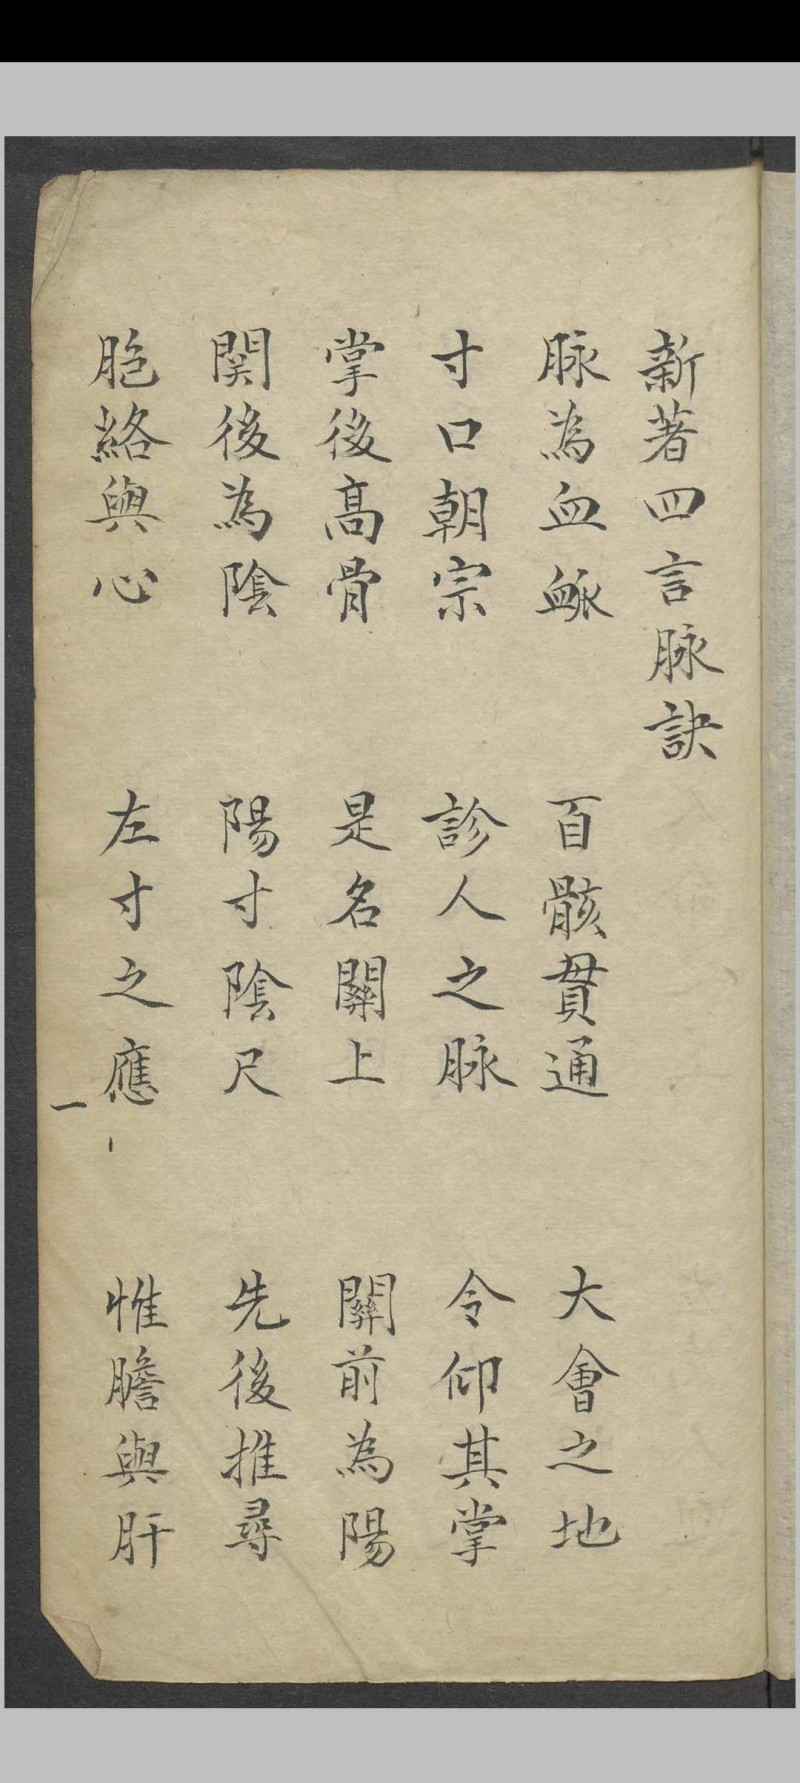 新著四言脉訣
脉為血䘑 百骸貫通 大會之地
寸口朝宗 診人之脉 令仰其掌
掌後高骨 是名關上 關前為陽
関後為陰 陽寸陰尺 先後推尋
胞絡與心 左寸之應 惟膽與肝
一